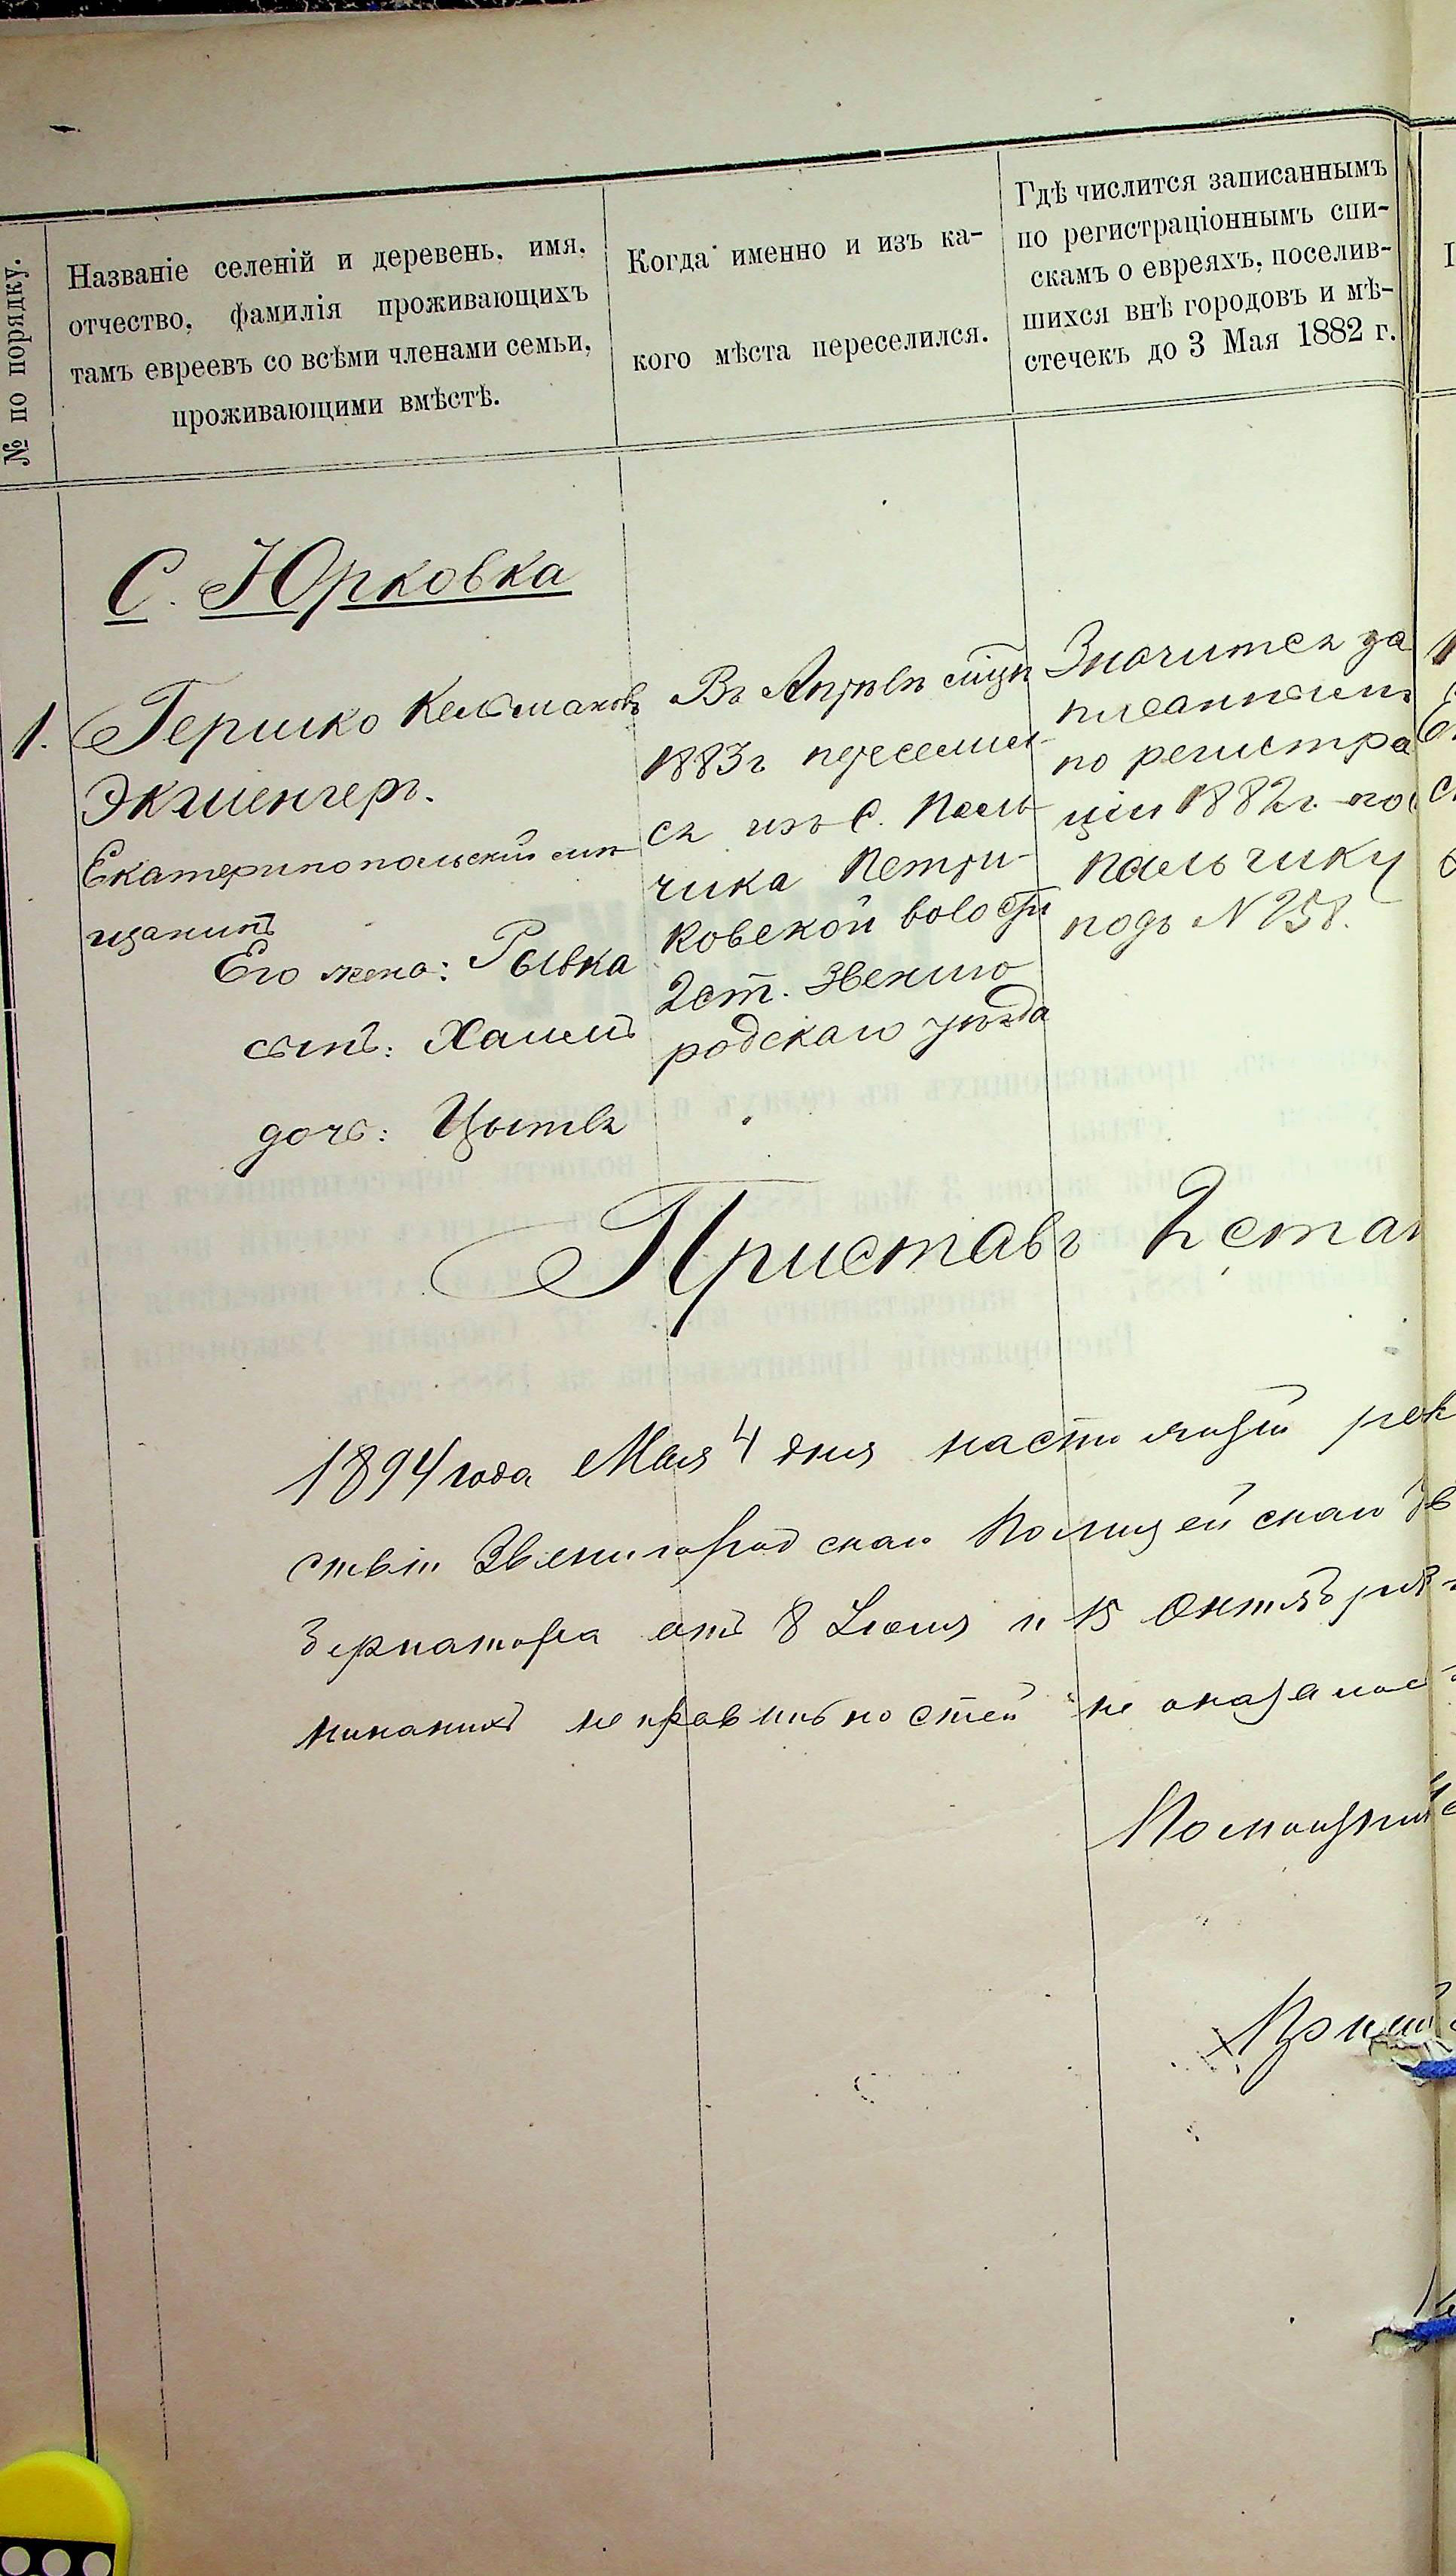 № по порядку.
Названіе селеній и деревень, имя,
отчество, фамилія проживающихъ
тамъ евреевъ со всѣми членами семьи,
проживающими вмѣстѣ.
Когда именно и изъ ка-
кого мѣста переселился.
Гдѣ числится записаннымъ
по регистраціоннымъ спи-
скамъ о евреяхъ, поселив-
шихся внѣ городовъ и мѣ-
стечекъ до 3 Мая 1882 г.
С. Юрковка
1. Гершко Кельмановъ
Экшенгеръ.
Екатеринопольскій мѣ-
щанинъ
Его жена: Рывка
сынъ: Хаимъ
дочь: Цытля
Въ Апрѣлѣ м‍ѣсяцѣ
1883г переселил
ся изъ с. Паль
чика Петри-
ковской волости
2 ст. Звениго
родскаго уѣзда
Значится за
писаннымъ
по регистра
ціи 1882г. по с
Пальчику
подъ N 258.
Приставъ 2 стан
1894 года Мая 4 дня настоящій
ствіи Звенигородскаго Полицейскаго
бернатора отъ 8 Іюля и 15 Октября
никакихъ неправильностей не оказалось